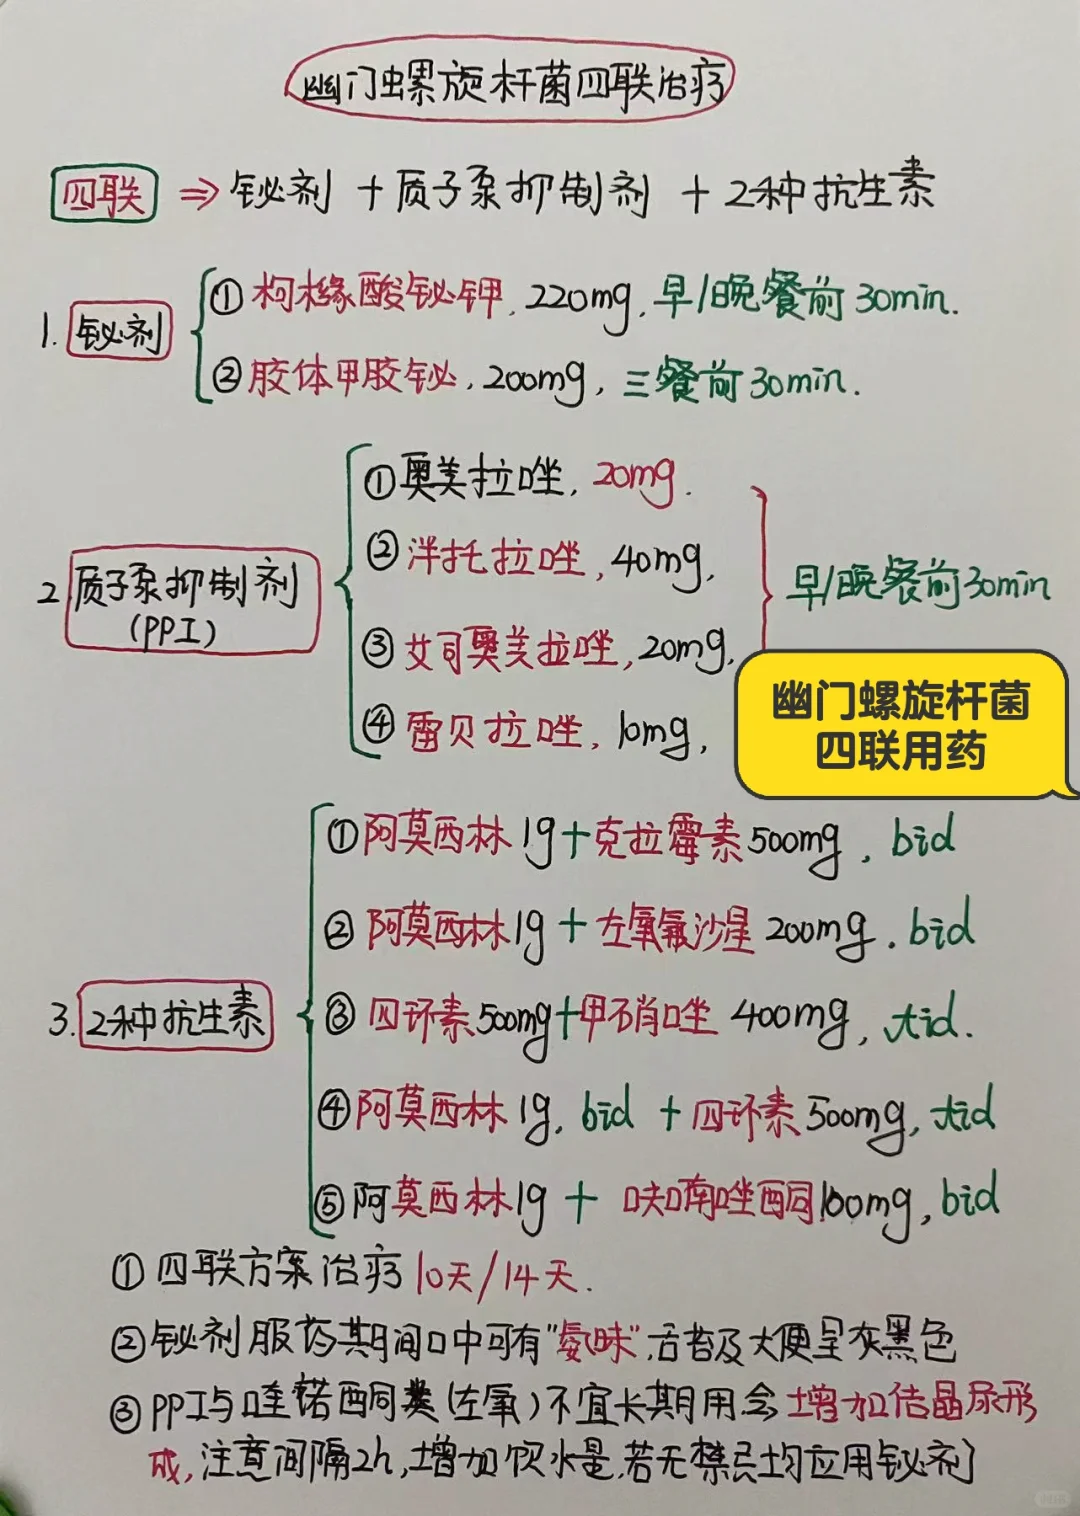 幽门螺旋杆菌四联治疗
四联 ⇒ 铋剂 + 质子泵抑制剂 + 2种抗生素
1. 铋剂
① 枸橼酸铋钾, 220mg, 早/晚餐前30min.
② 胶体果胶铋, 200mg, 三餐前30min.
2 质子泵抑制剂
(PPI)
① 奥美拉唑, 20mg.
② 泮托拉唑, 40mg,
③ 艾司奥美拉唑, 20mg,
④ 雷贝拉唑, 10mg,
早/晚餐前30min
幽门螺旋杆菌
四联用药
3. 2种抗生素
① 阿莫西林1g+克拉霉素500mg, bid
② 阿莫西林1g + 左氧氟沙星 200mg. bid
③ 四环素500mg+甲硝唑 400mg, tid.
④ 阿莫西林1g, bid + 四环素500mg, tid
⑤ 阿莫西林1g + 呋喃唑酮100mg, bid
① 四联方案治疗10天/14天.
② 铋剂服药期间口中可有"氨味",舌苔及大便呈灰黑色
③ PPI与喹诺酮类(左氧)不宜长期用.会增加结晶尿形
成, 注意间隔2h, 增加饮水量,若无禁忌均应用铋剂